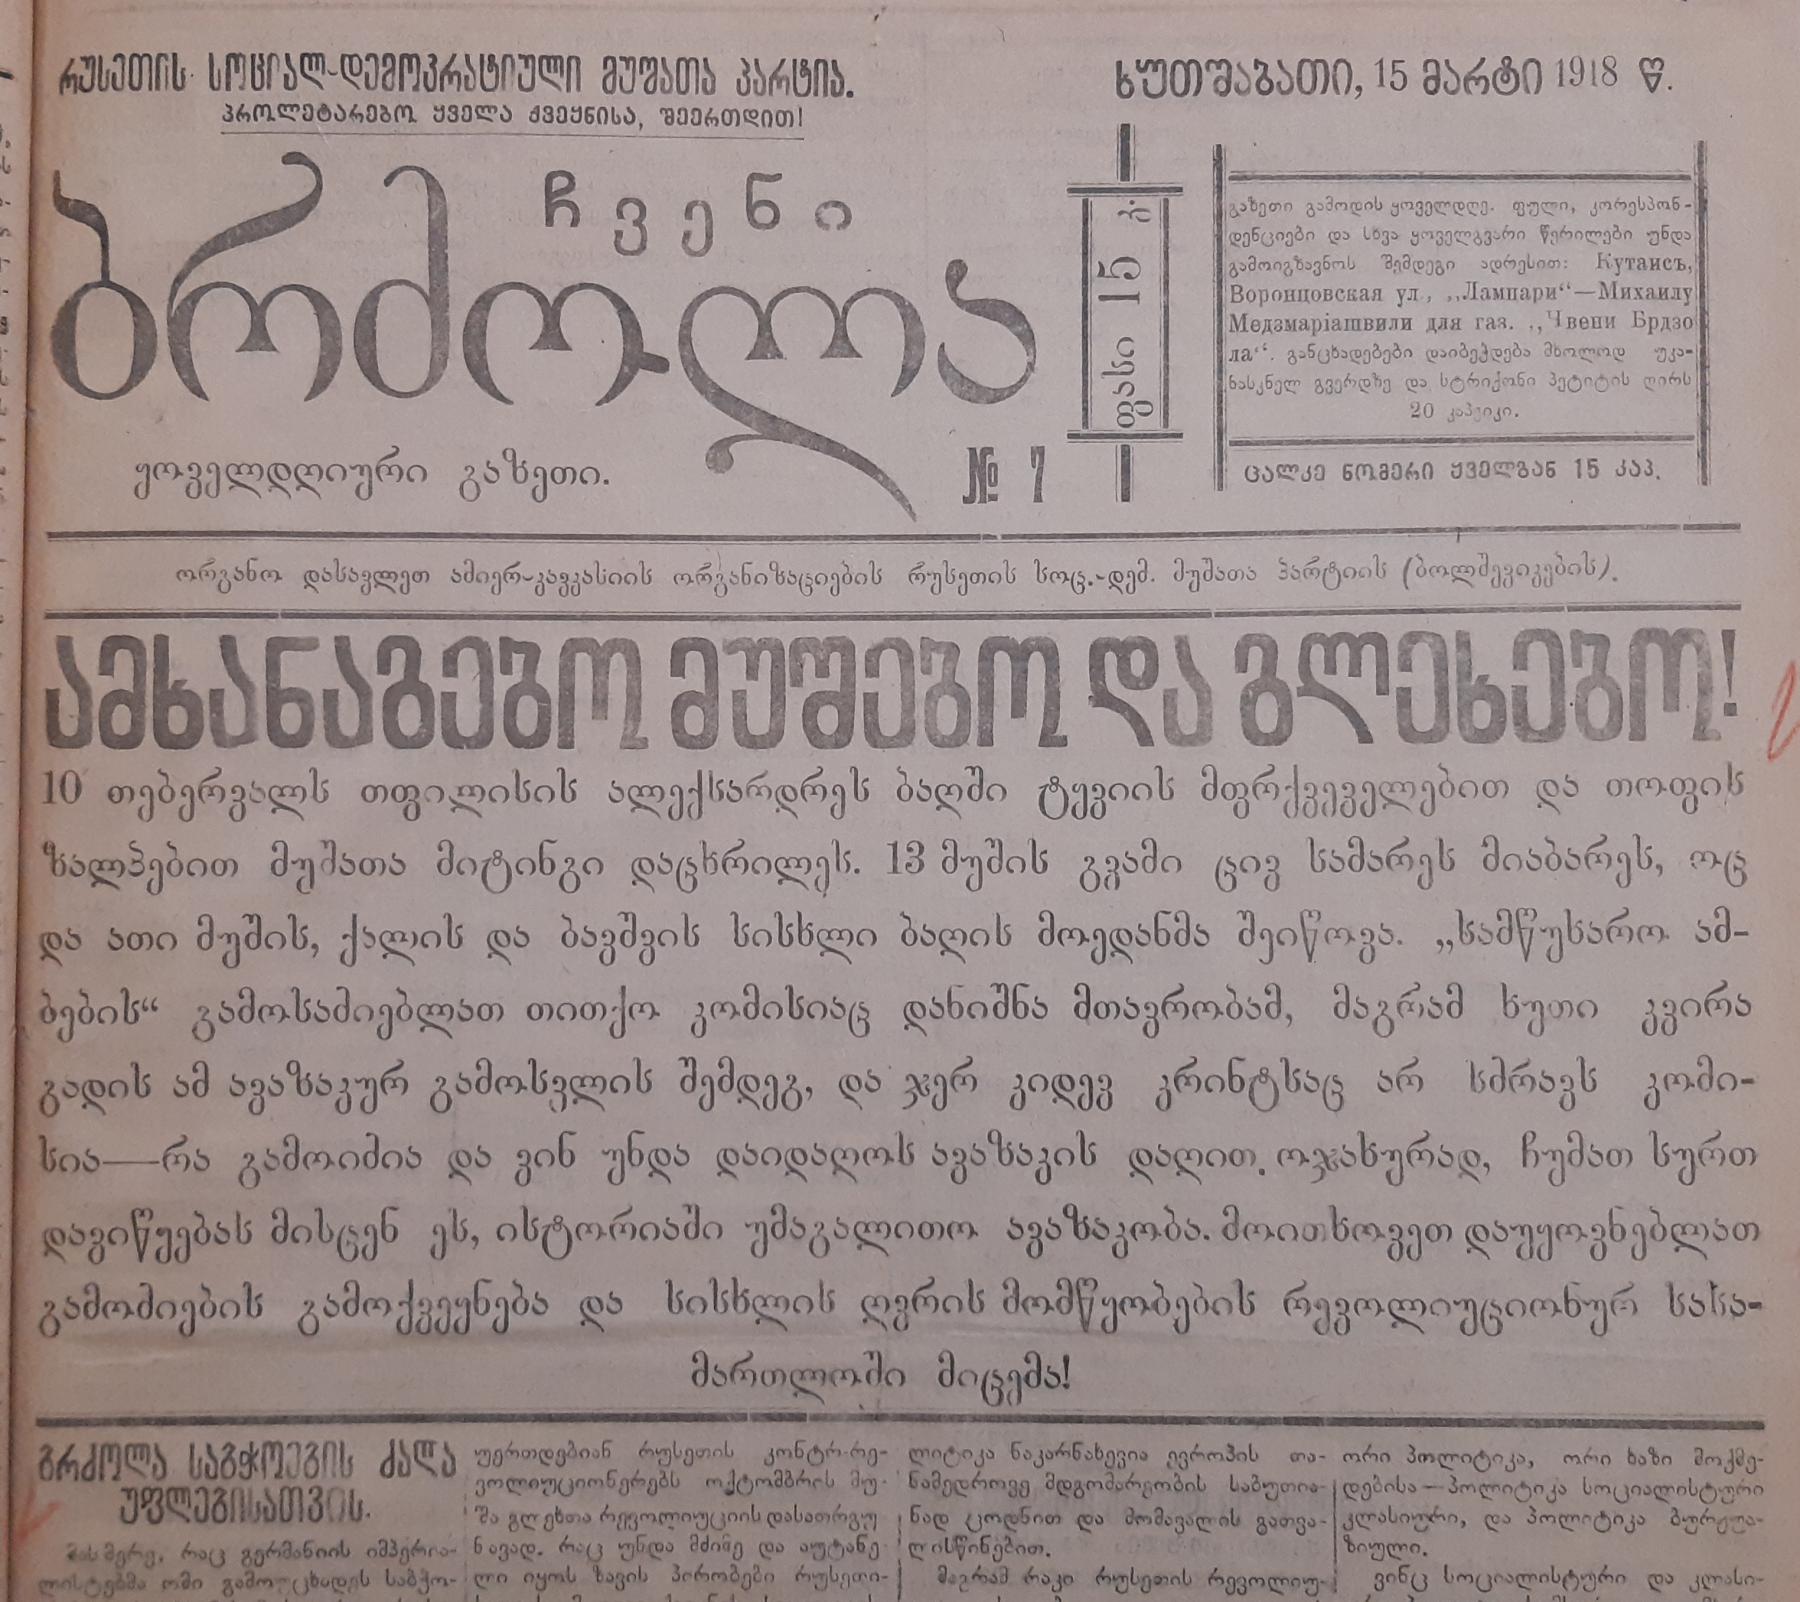 რუსეთის სოციალ-დემოკრატიული მუშათა პარტია.
პროლეტარებო ყველა ქვეყნისა, შეერთდით!
ხუთშაბათი, 15 მარტი 1918 წ.
ჩვენი
ბრძოლა
ყოველდღიური გაზეთი.
№ 7
ფასი 15 კ.
გაზეთი გამოდის ყოველდღე. ფული, კორესპონ-
დენციები და სხვა ყოველგვარი წერილები უნდა
გამოიგზავნოს შემდეგი ადრესით: Кутаисъ,
Воронцовская ул., „Лампари“—Михаилу
Медзмаріашвили для газ. „Чвени Брдзо
ла“. განცხადებები დაიბეჭდება მხოლოდ უკა-
ნასკნელ გვერდზე და სტრიქონი პეტიტის ღირს
20 კაპეიკი.
ცალკე ნომერი ყველგან 15 კაპ.
ორგანო დასავლეთ ამიერ-კავკასიის ორგანიზაციების რუსეთის სოც.-დემ. მუშათა პარტიის (ბოლშევიკების).
ამხანაგებო მუშებო და გლეხებო!
10 თებერვალს თფილისის ალექსარდრეს ბაღში ტყვიის მფრქვეველებით და თოფის
ზალპებით მუშათა მიტინგი დაცხრილეს. 13 მუშის გვამი ცივ სამარეს მიაბარეს, ოც
და ათი მუშის, ქალის და ბავშვის სისხლი ბაღის მოედანმა შეიწოვა. „სამწუხარო ამ-
ბების“ გამოსაძიებლათ თითქო კომისიაც დანიშნა მთავრობამ, მაგრამ ხუთი კვირა
გადის ამ ავაზაკურ გამოსვლის შემდეგ, და ჯერ კიდევ კრინტსაც არ სძრავს კომი-
სია—რა გამოიძია და ვინ უნდა დაიდაღოს ავაზაკის დაღით. ოჯახურად, ჩუმათ სურთ
დავიწყებას მისცენ ეს, ისტორიაში უმაგალითო ავაზაკობა. მოითხოვეთ დაუყოვნებლათ
გამოძიების გამოქვეყნება და სისხლის ღვრის მომწყობების რევოლიუციონურ სასა-
მართლოში მიცემა!
ბრძოლა საბჭოების ძალა
უფლებისათვის.
მას მერე, რაც გერმანიის იმპერია-
ლისტებმა ომი გამოუცხადეს საბჭო-
უერთდებიან რუსეთის კონტრ-რე-
ვოლიუციონერებს ოქტომბრის მუ-
შა გლეხთა რევოლიუციის დასათრგუ
ნავად. რაც უნდა მძიმე და აუტანე
ლი იყოს ზავის პირობები რუსეთი-
ლიტიკა ნაკარნახევია ევროპის თა-
ნამედროვე მდგომარეობის საბუთია-
ნად ცოდნით და მომავალის გათვა-
ლისწინებით.
მაგრამ რაკი რუსეთის რევოლიუ-
ორი პოლიტიკა, ორი ხაზი მოქმე-
დებისა—პოლიტიკა სოციალისტური
კლასიური, და პოლიტიკა ბურჟუა-
ზიული.
ვინც სოციალისტური და კლასი-